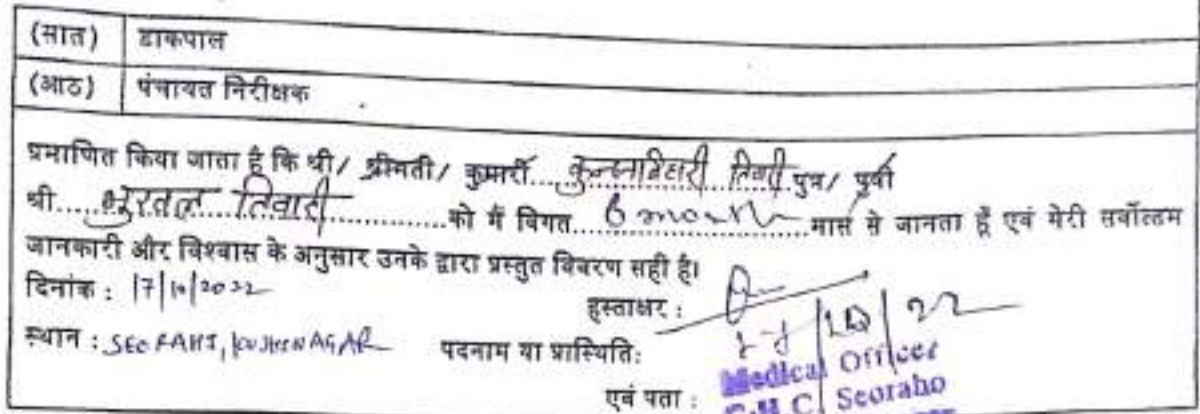 (सात) डाकपाल
(आठ) पंचायत निरीक्षक
प्रमाणित किया जाता है कि श्री/ श्रीमती/ कुमारी.... तिवारी पुत्र/ पुत्री
श्री..... तिवारी ............को मैं विगत... 6 month ............मास से जानता हूँ एवं मेरी सर्वोत्तम
जानकारी और विश्वास के अनुसार उनके द्वारा प्रस्तुत विवरण सही है।
दिनांक : 17/10/2022
हस्ताक्षर :
स्थान : SEORAHI, KUSHINAGAR पदनाम या प्रास्थिति:
एवं पता :
Medical Officer
C.H.C. Seoraho